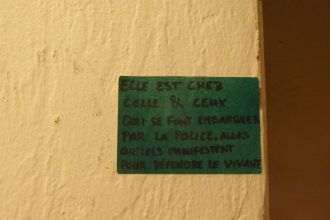 ELLE EST CHEZ
CELLE & CEUX
QUI SE FONT EMBARQUER
PAR LA POLICE, ALORS
QU'ILS MANIFESTENT
POUR DÉFENDRE LE VIVANT